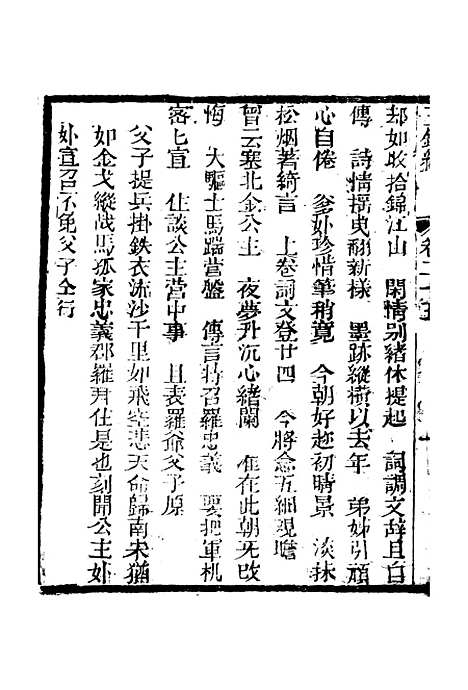 卷二十五
却如收拾錦江山　閑情別緒休提起　詞調文辞且自
傳　詩情搊曳翻新樣　墨跡縱橫以去年　弟姊引頑
心自倦　爹外珍惜筆稍寛　今朝好趂初晴景　淡抹
松烟著綺言　上卷詞文登廿四　今將念五細現瞻
曾云塞北金公主　夜夢升沉心緒闌　隹在此朝死改
悔　大驅士馬踹營盤　傳言特召羅忠義　要把軍机
密匕宣　住談公主營中事　且表羅爺父子原
父子提兵掛鉄衣流沙千里如飛　悲天命歸南未猶
如金戈縱战馬孤家忠義郡羅尹仕是也刻聞公主外
外宣召不免父子仝行